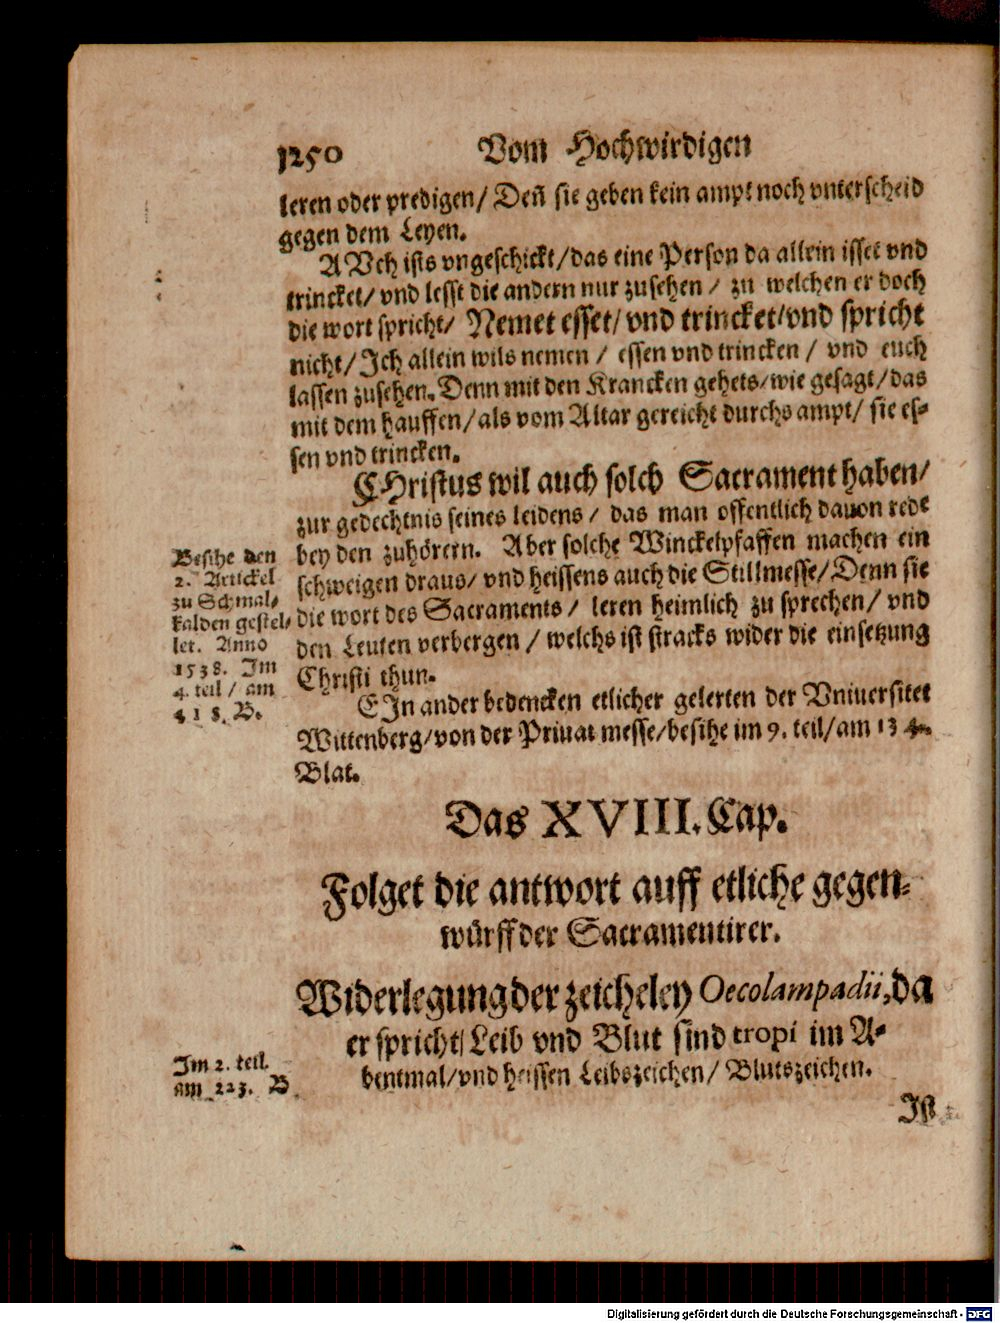 1250 Vom Hochwirdigen
leren oder predigen/ Deñ sie geben kein ampt noch vnterscheid
gegen dem Leyen.
AVch ists vngeschickt/ das eine Person da allein isset vnd
trincket/ vnd lesst die andern nur zusehen / zu welchen er doch
die wort spricht/ Nemet esset/ vnd trincket/ vnd spricht
nicht/ Ich allein wils nemen / essen vnd trincken / vnd euch
lassen zusehen. Denn mit den Krancken gehets/ wie gesagt/ das
mit dem hauffen/ als vom Altar gereicht durchs ampt/ sie es-
sen vnd trincken.
CHristus wil auch solch Sacrament haben/
zur gedechtnis seines leidens / das man offentlich dauon rede
bey den zuhörern. Aber solche Winckelpfaffen machen ein
schweigen draus/ vnd heissens auch die Stillmesse/ Denn sie
die wort des Sacraments / leren heimlich zu sprechen/ vnd
den Leuten verbergen / welchs ist stracks wider die einsetzung
Christi thun.
Besihe den
2. Artickel
zu Schmal-
kalden gestel-
let. Anno
1538. Im
4. teil / am
418. B.
EIn ander bedencken etlicher gelerten der Vniuersitet
Wittenberg/ von der Priuat messe/ besihe im 9. teil/ am 134.
Blat.
Das XVIII. Cap.
Folget die antwort auff etliche gegen-
würff der Sacramentirer.
Widerlegung der zeicheley Oecolampadii, da
er spricht/ Leib vnd Blut sind tropi im A-
bentmal/ vnd heissen Leibszeichen/ Blutszeichen.
Im 2. teil.
am 223. B
Ist
Digitalisierung gefördert durch die Deutsche Forschungsgemeinschaft - DFG